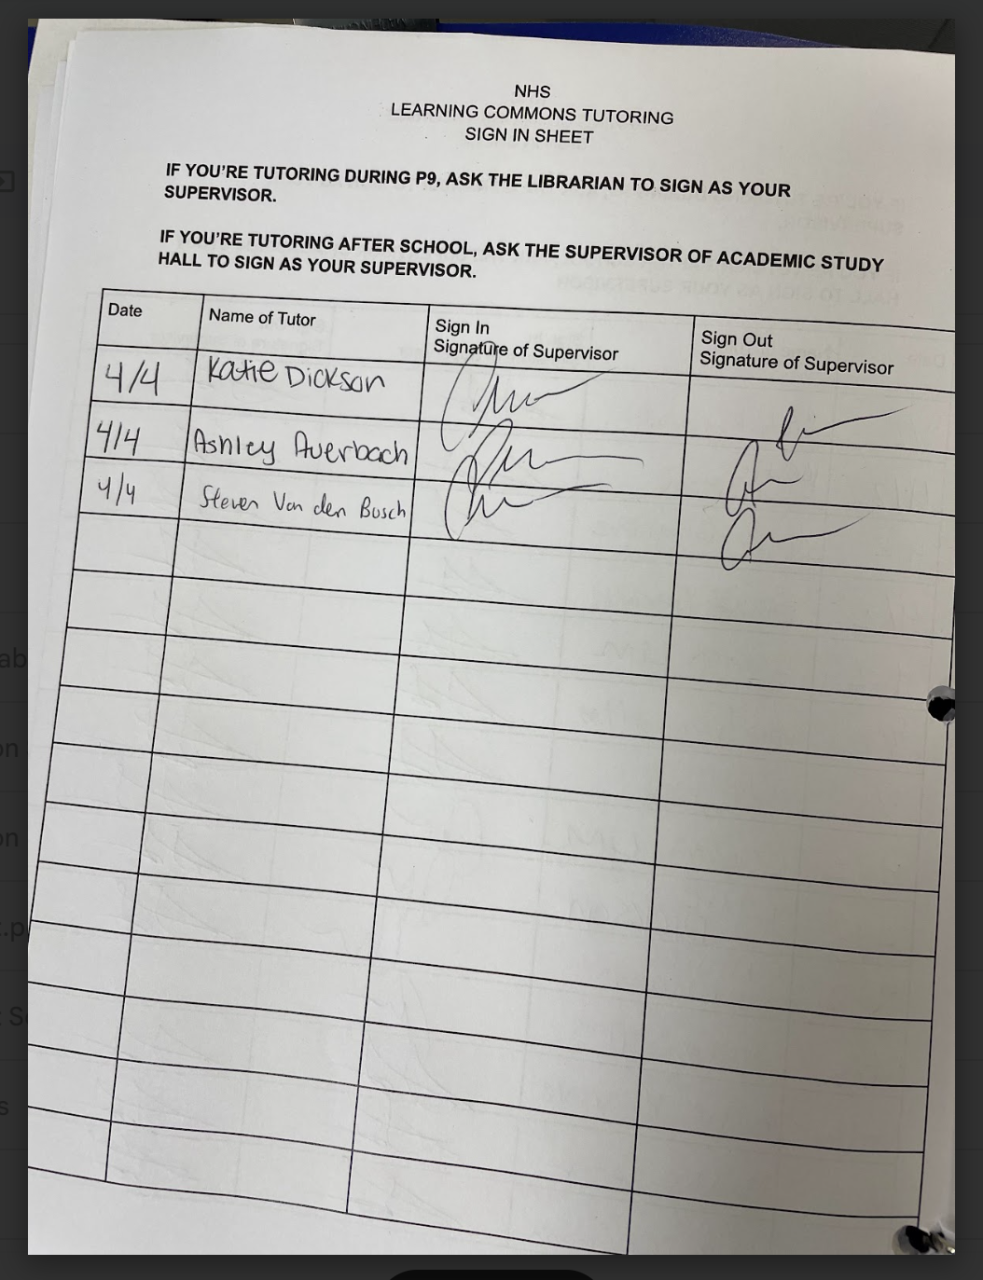 NHS
LEARNING COMMONS TUTORING
SIGN IN SHEET
IF YOU'RE TUTORING DURING P9, ASK THE LIBRARIAN TO SIGN AS YOUR
SUPERVISOR.
IF YOU'RE TUTORING AFTER SCHOOL, ASK THE SUPERVISOR OF ACADEMIC STUDY
HALL TO SIGN AS YOUR SUPERVISOR.
Date Name of Tutor Sign In Signature of Supervisor Sign Out Signature of Supervisor
4/4 Katie Dickson
4/4 Ashley Auerbach
4/4 Steven Van den Bosch